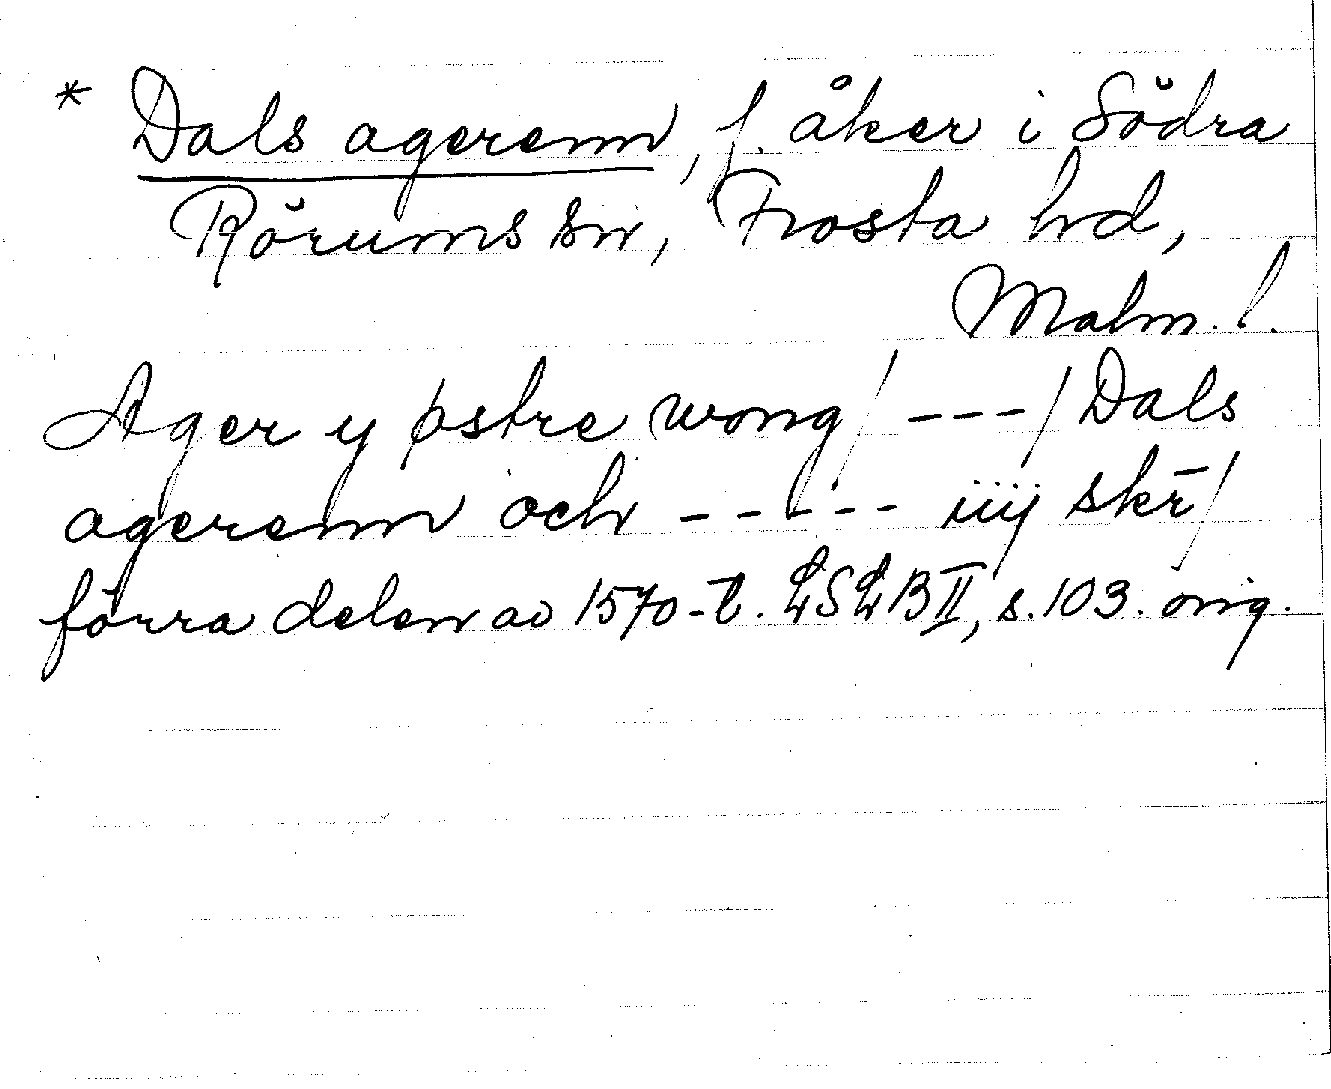 * Dals agerenn, f. åker i Södra
Rörums sn, Frosta hd,
Malm. l.
Ager y østre wong / --- / Dals
agerenn och ----- iiij skr̄ /
förra delen av 1570-t. LSLB II, s. 103. orig.